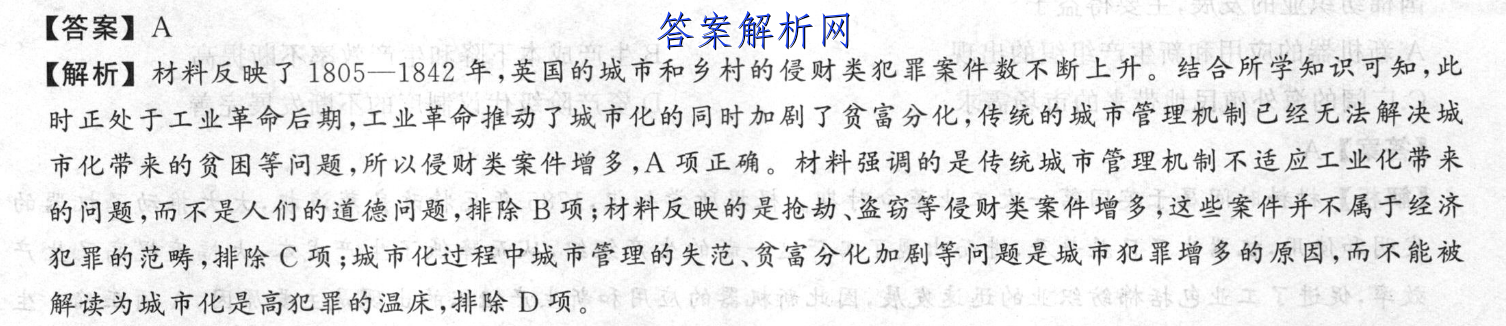 【答案】A
答案解析网
【解析】材料反映了1805—1842年,英国的城市和乡村的侵财类犯罪案件数不断上升。结合所学知识可知,此
时正处于工业革命后期,工业革命推动了城市化的同时加剧了贫富分化,传统的城市管理机制已经无法解决城
市化带来的贫困等问题,所以侵财类案件增多,A项正确。材料强调的是传统城市管理机制不适应工业化带来
的问题,而不是人们的道德问题,排除B项;材料反映的是抢劫、盗窃等侵财类案件增多,这些案件并不属于经济
犯罪的范畴,排除C项;城市化过程中城市管理的失范、贫富分化加剧等问题是城市犯罪增多的原因,而不能被
解读为城市化是高犯罪的温床,排除D项。